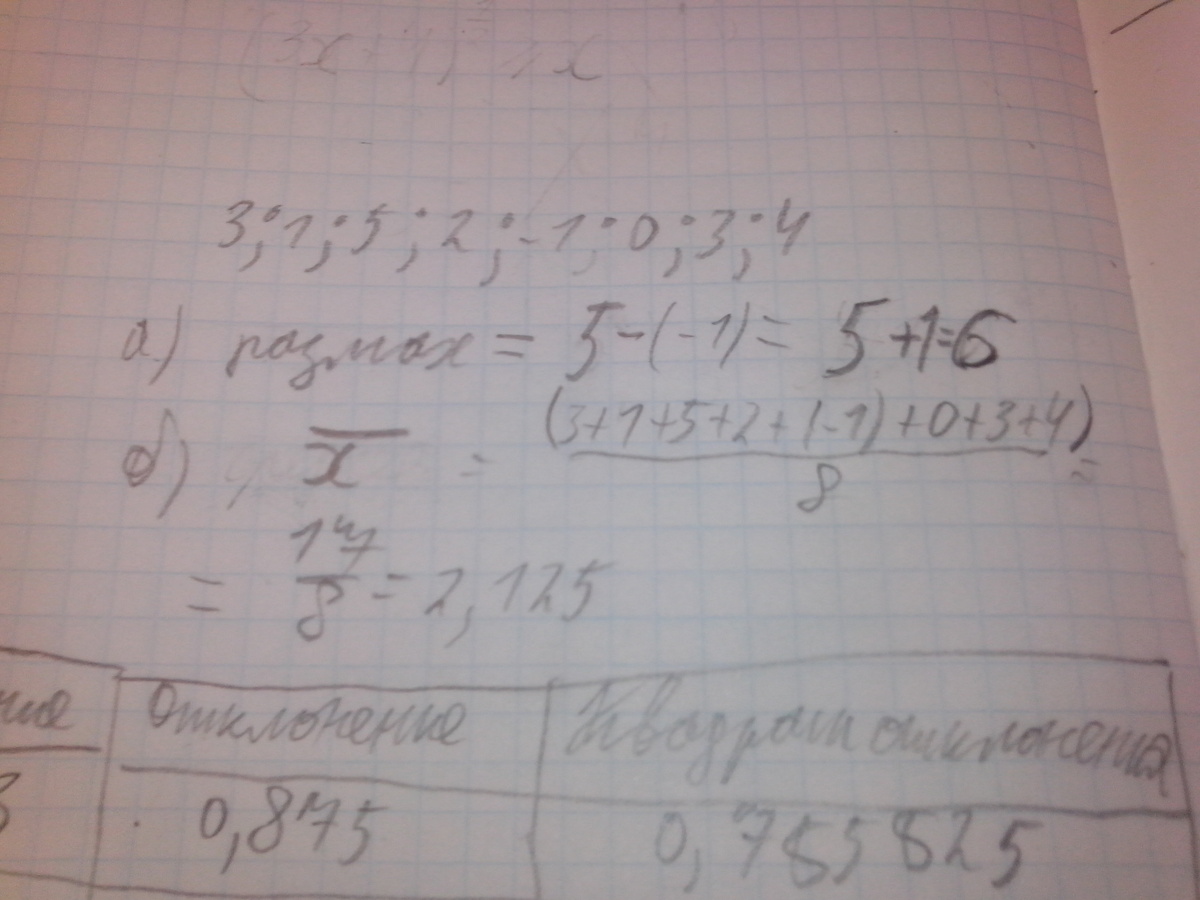 3;1;5;2;-1;0;3;4
а) размах = 5-(-1)= 5+1=6
б) x̄ = (3+1+5+2+(-1)+0+3+4)/8 =
= 17/8 = 2,125
Отклонение Квадрат отклонения
3 0,875